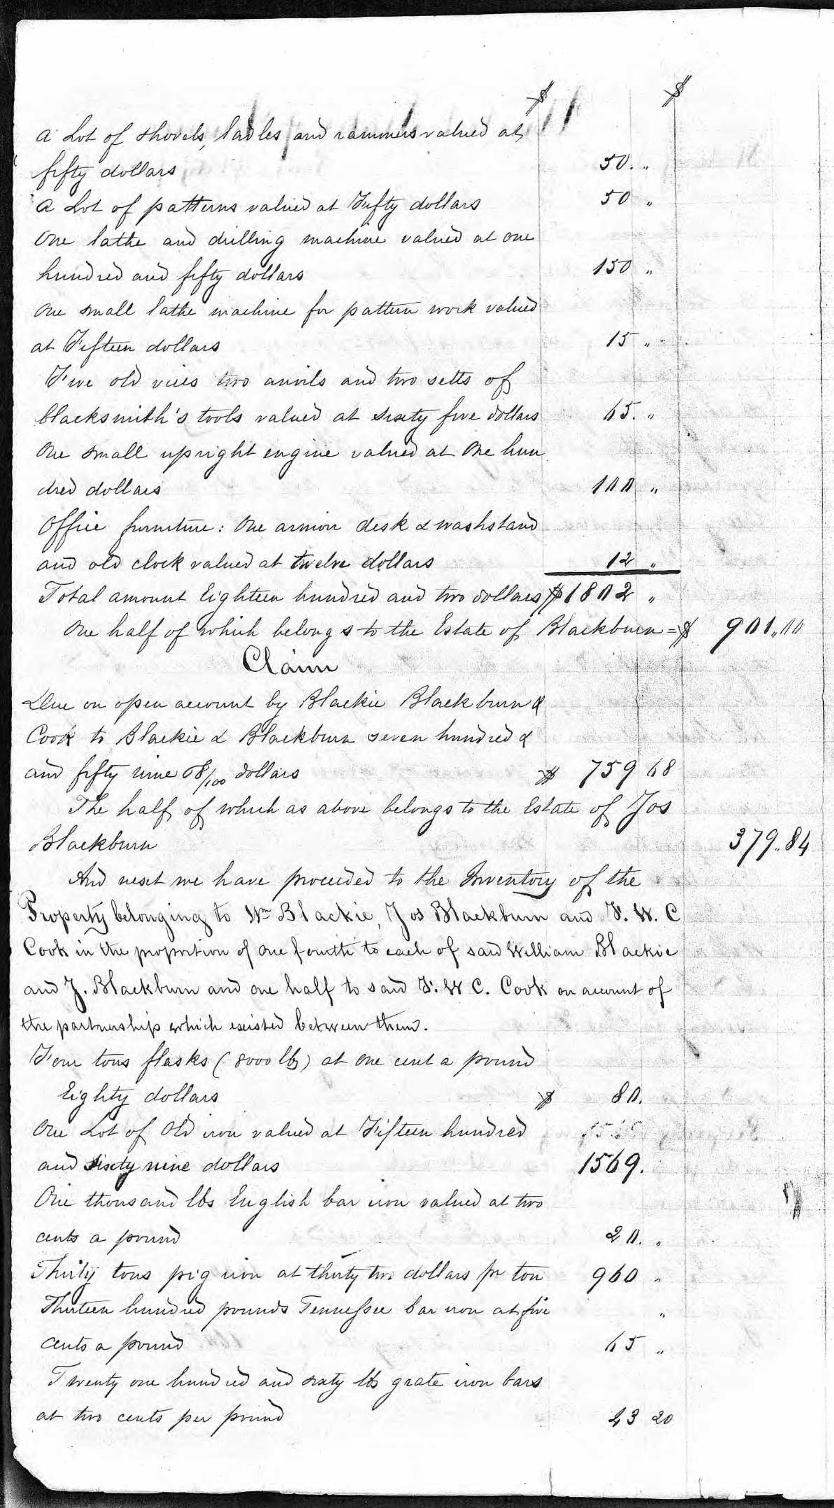 $ $
A Lot of shovels, ladles and rammers valued at
fifty dollars 50. "
A Lot of patterns valued at Fifty dollars 50 "
One lathe and drilling machine valued at one
hundred and fifty dollars 150 "
One small lathe machine for pattern work valued
at Fifteen dollars 15 "
Five old vices two anvils and two setts of
blacksmith's tools valued at sixty five dollars 65. "
One small upright engine valued at One hun
dred dollars 100 "
Office furniture: One armoir desk & washstand
and old clock valued at twelve dollars 12 "
Total amount Eighteen hundred and two dollars $1802 "
One half of which belongs to the Estate of Blackburn = $ 901.00
Claim
Due on open account by Blackie Blackburn &
Cook to Blackie & Blackburn seven hundred &
and fifty nine 68/100 dollars $ 759 68
The half of which as above belongs to the Estate of Jos
Blackburn 379.84
And next we have proceeded to the Inventory of the
Property belonging to Wm Blackie, Jos Blackburn and F. W. C
Cook in the proportion of one fourth to each of said William Blackie
and J. Blackburn and one half to said F. W C. Cook on account of
the partnership which existed between them.
Four tons flasks (8000 lb) at one cent a pound
Eighty dollars $ 80.
One Lot of Old iron valued at Fifteen hundred
and sixty nine dollars 1569.
One thousand lbs English bar iron valued at two
cents a pound 20. "
Thirty tons pig iron at thirty two dollars pr ton 960 "
Thirteen hundred pounds Tennessee bar iron at five "
cents a pound 65 "
Twenty one hundred and sixty lbs grate iron bars
at two cents per pound 43 20